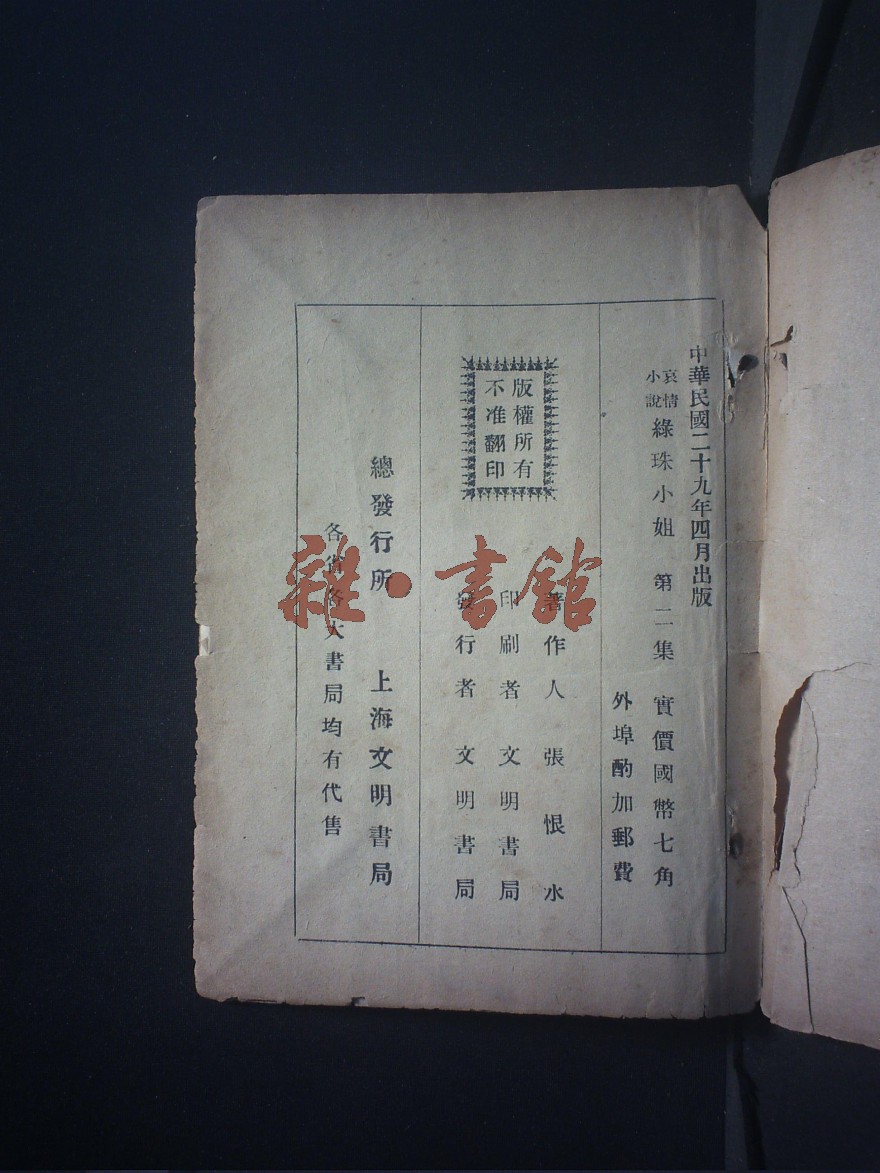 中華民國二十九年四月出版
哀情
小說
綠珠小姐 第二集 實價國幣七角
外埠酌加郵費
版權所有
不准翻印
著作人 張恨水
印刷者 文明書局
發行者 文明書局
總發行所 上海文明書局
各省各大書局均有代售
雜·書館